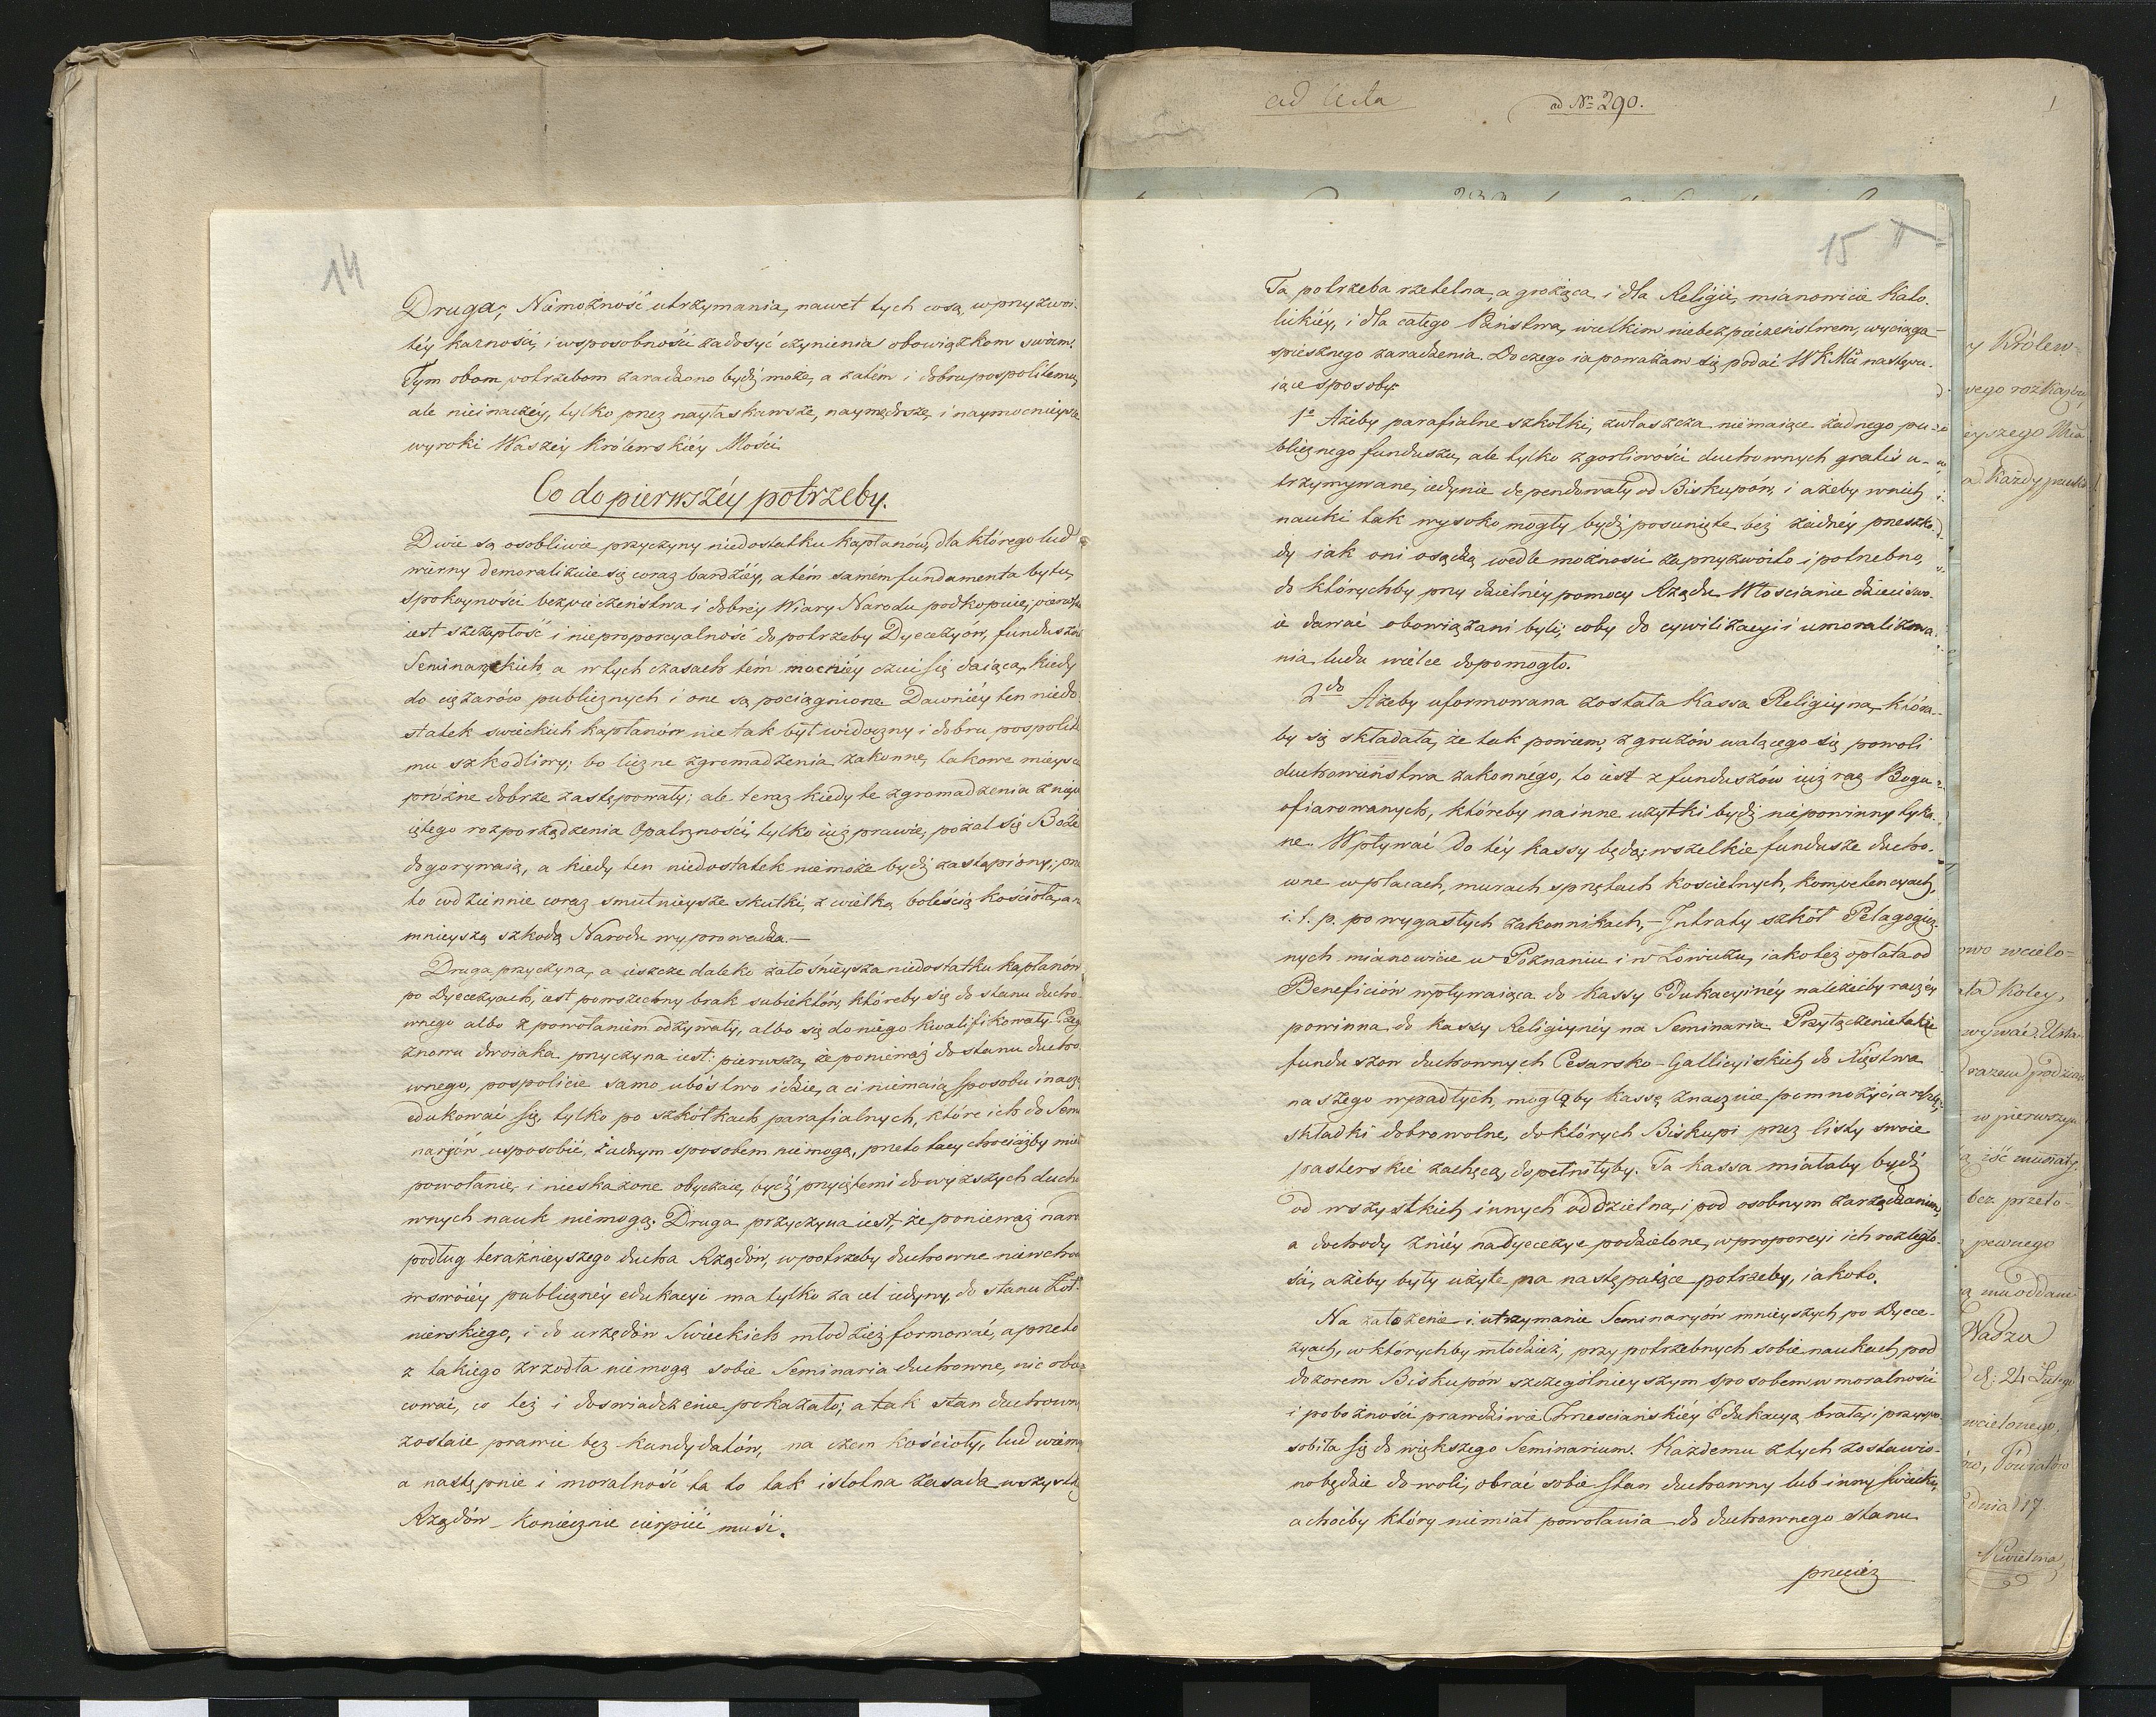 14
Druga; Niemożność utrzymania, nawet tych co są, w przyzwoi-
téy karności, i w sposobności zadosyć czynienia obowiązkom swoim.
Tym obom potrzebom zaradzono bydź może, a zatém i dobru pospolitemu,
ale nieinaczéy, tylko przez nayłaskawsze, naymędrsze, i naymocnieysze
wyroki Waszéy Królewskiéy Mości.
Co do pierwszéy potrzeby.
Dwie są osobliwie przyczyny niedostatku kapłanów, dla którego lud
wierny demoralizuie się coraz bardziéy, a tém samém fundamenta bytu,
spokoyności bezpieczeństwa i dobréy Wiary Narodu podkopuie;
iest szczupłość i nieproporcyalność do potrzeby Dyecezyów, funduszów
Seminarskich, a w tych czasach tém mocniéy czuć się daiąca, kiedy
do ciężarów publicznych i one są pociągnione. Dawniéy ten niedo-
statek swieckich kapłanów nie tak był widoczny i dobru pospolite
mu szkodliwy; bo liczne zgromadzenia zakonne, takowe mieysca
próżne dobrze zastępowały; ale teraz kiedy te zgromadzenia z
iętego rozporządzenia Opatrzności, tylko iuż prawie, pożal się Boże
dogorywaią, a kiedy ten niedostatek niemoże bydź zastąpiony;
to codziennie coraz smutnieysze skutki, z wielką boleścią kościoła, a n
mnieyszą szkodą Narodu wyprowadza.—
Druga przyczyna, a ieszcze daleko żałośnieysza niedostatku kapłanów
po Dyecezyach, iest powszechny brak subiektów, któreby się do stanu ducho-
wnego albo z powołaniem odzywały, albo się do niego kwalifikowały. Czego
znowu dwoiaka przyczyna iest: pierwsza, że ponieważ do stanu ducho
wnego, pospolicie samo ubóstwo idzie, a ci niemaią sposobu inacz
edukować się, tylko po szkółkach parafialnych, które ich do Semi
naryów usposobić, żadnym sposobem niemogą, przeto tacy chociażby mieli
powołanie, i nieskażone obyczaie, bydź przyiętemi do wyższych ducho
wnych nauk niemogą. Druga przyczyna iest, że ponieważ naro
podług teraźnieyszego ducha Rządów, w potrzeby duchowne niewcho
w swoiéy publicznéy edukacyi ma tylko za cel iedyny, do stanu żoł-
nierskiego, i do urzędów Swieckich młodzież formować, a przeto
z takiego zrzodła niemogą sobie Seminaria duchowne, nic obie
cować, co też i doswiadczenie pokazało; a tak stan duchowny
zostaie prawie bez kandydatów, na czem kościoły, lud wierny
a następnie i moralność ta to tak istotna zasada wszystkich
Rządów koniecznie cierpieć musi.
ad Acta
ad Nr 290.
1
15
Ta potrzeba rzetelna, a grożąca i dla Religii, mianowicie Kato-
lickiéy, i dla całego Państwa, wielkim niebezpieczeństwem, wyciąga
spiesznego zaradzenia. Do czego ia poważam się podać WKMci następu-
iące sposoby.
1o Ażeby parafialne szkółki, zwłaszcza niemaiące żadnego pu-
blicznego funduszu, ale tylko z gorliwości duchownych gratis u-
trzymywane, iedynie dependowały od Biskupów, i ażeby w nich
nauki tak wysoko mogły bydź posunięte bez żadnéy przeszko
dy iak oni osądzą wedle możnosci za przyzwoito i potrzebno,
do którychby przy dzielnéy pomocy Rządu Włoscianie dzieci swo-
ie dawać obowiązani byli, coby do cywilizacyi i umoralizowa-
nia ludu wielce dopomogło.
2do Ażeby uformowana została Kassa Religiyna, która-
by się składała, że tak powiem, z gruzów walącego się powoli
duchowieństwa zakonnégo, to iest z funduszów iuż raz Bogu
ofiarowanych, któreby na inne użytki bydź niepowinny tyka-
ne. Wpływać do téy kassy będą: wszelkie fundusze ducho-
wne w placach, murach, sprzętach kościelnych, kompetencyach,
i. t. p. po wygasłych zakonnikach,— Intraty szkół Pedagogicz-
nych mianowicie w Poznaniu i w Łowiczu, iako też opłata od
Beneficiów wpływaiąca do kassy Edukacyinéy należećby raczéy
powinna do kassy Religiynéy na Seminaria. Przyłączenie także
funduszow duchownych Cesarsko-Gallicyiskich do Xięstwa
naszego wpadłych, mogłoby kassę znacznie pomnożyć, a resztę
składki dobrowolne, do których Biskupi przez listy swoie
pasterskie zachęcą, dopełniłyby. Ta kassa miałaby bydź
od wszystkich innych oddzielna, i pod osobnym zarządzaniem,
a dochody z niéy na dyecezye podzielone, w proporcyi ich rozległo-
ści, ażeby były użyte na następuiące potrzeby, iakoto.
Na założenie i utrzymanie Seminaryów mnieyszych po Dyece-
zyach, w którychby młodzież, przy potrzebnych sobie naukach, pod
dozorem Biskupów szczególnieyszym sposobem w moralności
i pobożności prawdziwie Chrześciańskiéy Edukacyą brała, i przyspo-
sobiła się do większego Seminarium. Każdemu z tych zostawio-
no będzie do woli, obrać sobie stan duchowny lub inny swiecki,
a choćby który niemiał powołania do duchownego stanu
przecież
y Królew-
wego rozkazu,
eyszego
a Każdy
owo wcielo-
ata koley,
razem
w pierwszym
iść musiały
bez przeło-
pewnego
mu oddane
Wadza
d: 24 Lutego
wcielonego,
ów, Powiatów
dnia 17.
Kwietnia